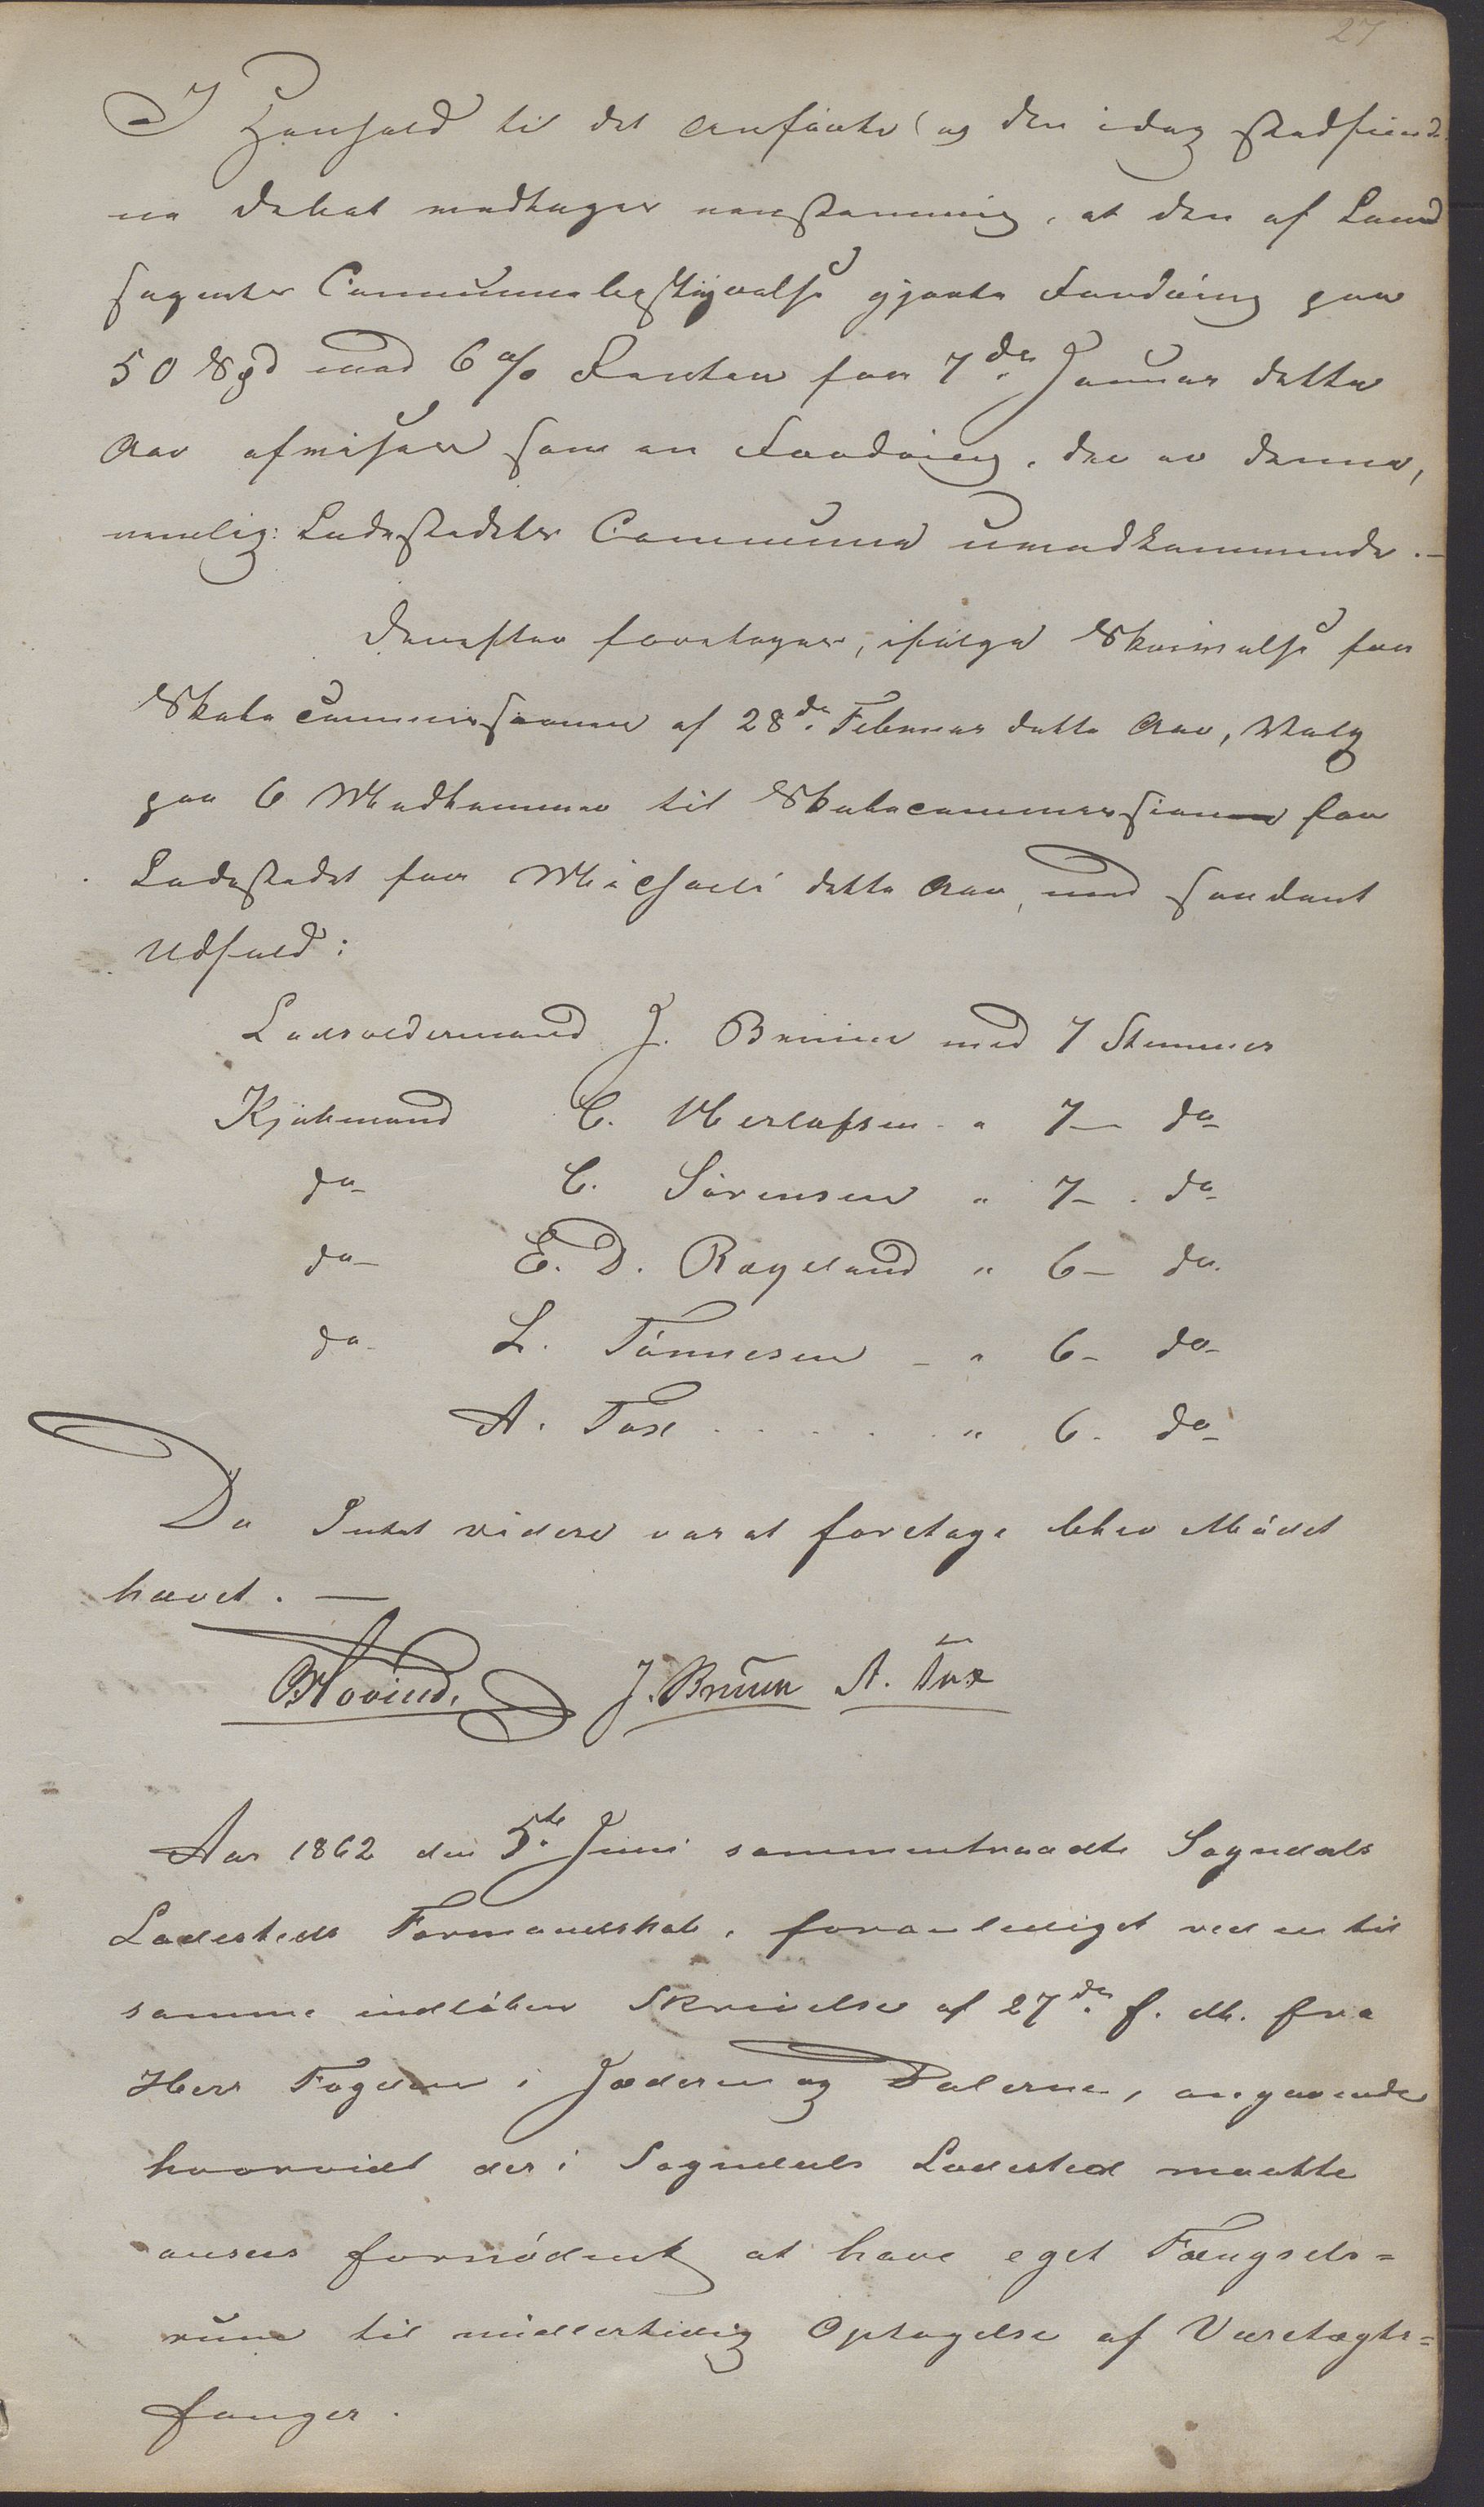 27
I Henhold til det Anførte og den idag stedfund-
ne Debat vedtages eenstemmig, at den af Land
sognets Communebestyrelse gjorte Fordring paa
50 Spd med 6 % Renter fra 7de Januar dette
Aar afvises som en Fordring, der er denne,
nemlig: Ladestedets Commune uvedkommende. –
Derefter foretages, ifølge Skrivelse fra
Skatecommissionen af 28de Februar dette Aar, Valg
paa 6 Medlemmer til Skatecommissionen for
Ladestedet for Michaeli dette Aar, med saadant
Udfald:
Lodsoldermand J. Bruun med 7 Stemmer
Kjøbmand C. Herlofsen " 7 – do
do C. Sørensen " 7 – do
do E. D. Rægeland " 6 – do
do L. Tønnesen – " 6 – do
A. Tox . . . . . " 6 – do
Da Intet videre var at foretage blev Mødet
hævet. —
Hovind. J. Bruun A. Tox
Aar 1862 den 5te Juni sammentraadte Sogndals
Ladesteds Formandskab, foranlediget ved en til
samme indløben Skrivelse af 27de f. M. fra
Herr Fogden i Jæderen og Dalerne, angaaende
hvorvidt der i Sogndals Ladested maatte
ansees fornødent at have eget Fængsels=
rum til midlertidig Optagelse af Varetægts=
fanger.